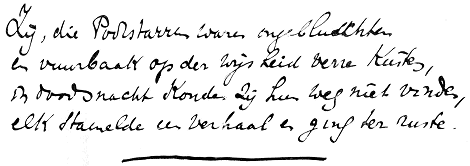 Zij, die Poolstarren waren ongebluschten
en vuurbaak op der wijsheid verre Kusten,
in doodsnacht Konden Zij hun weg niet vinden,
elk Stamelde een verhaal en ging ter ruste.